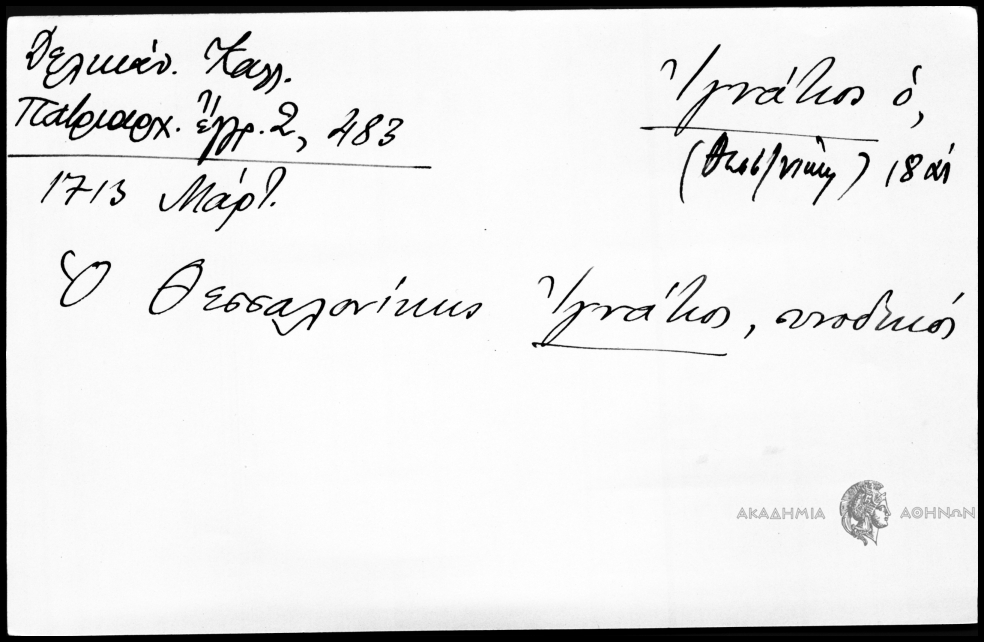 Δελικάν. Καλλ.
Πατριαρχ. Ἔγγρ. 2, 483
1713 Μάρτ.
Ἰγνάτιος ὁ,
(Θεσσ/νίκης) 18 αἰ
Ὁ Θεσσαλονίκης Ἰγνάτιος, συνοδικός
ΑΚΑΔΗΜΙΑ ΑΘΗΝΩΝ